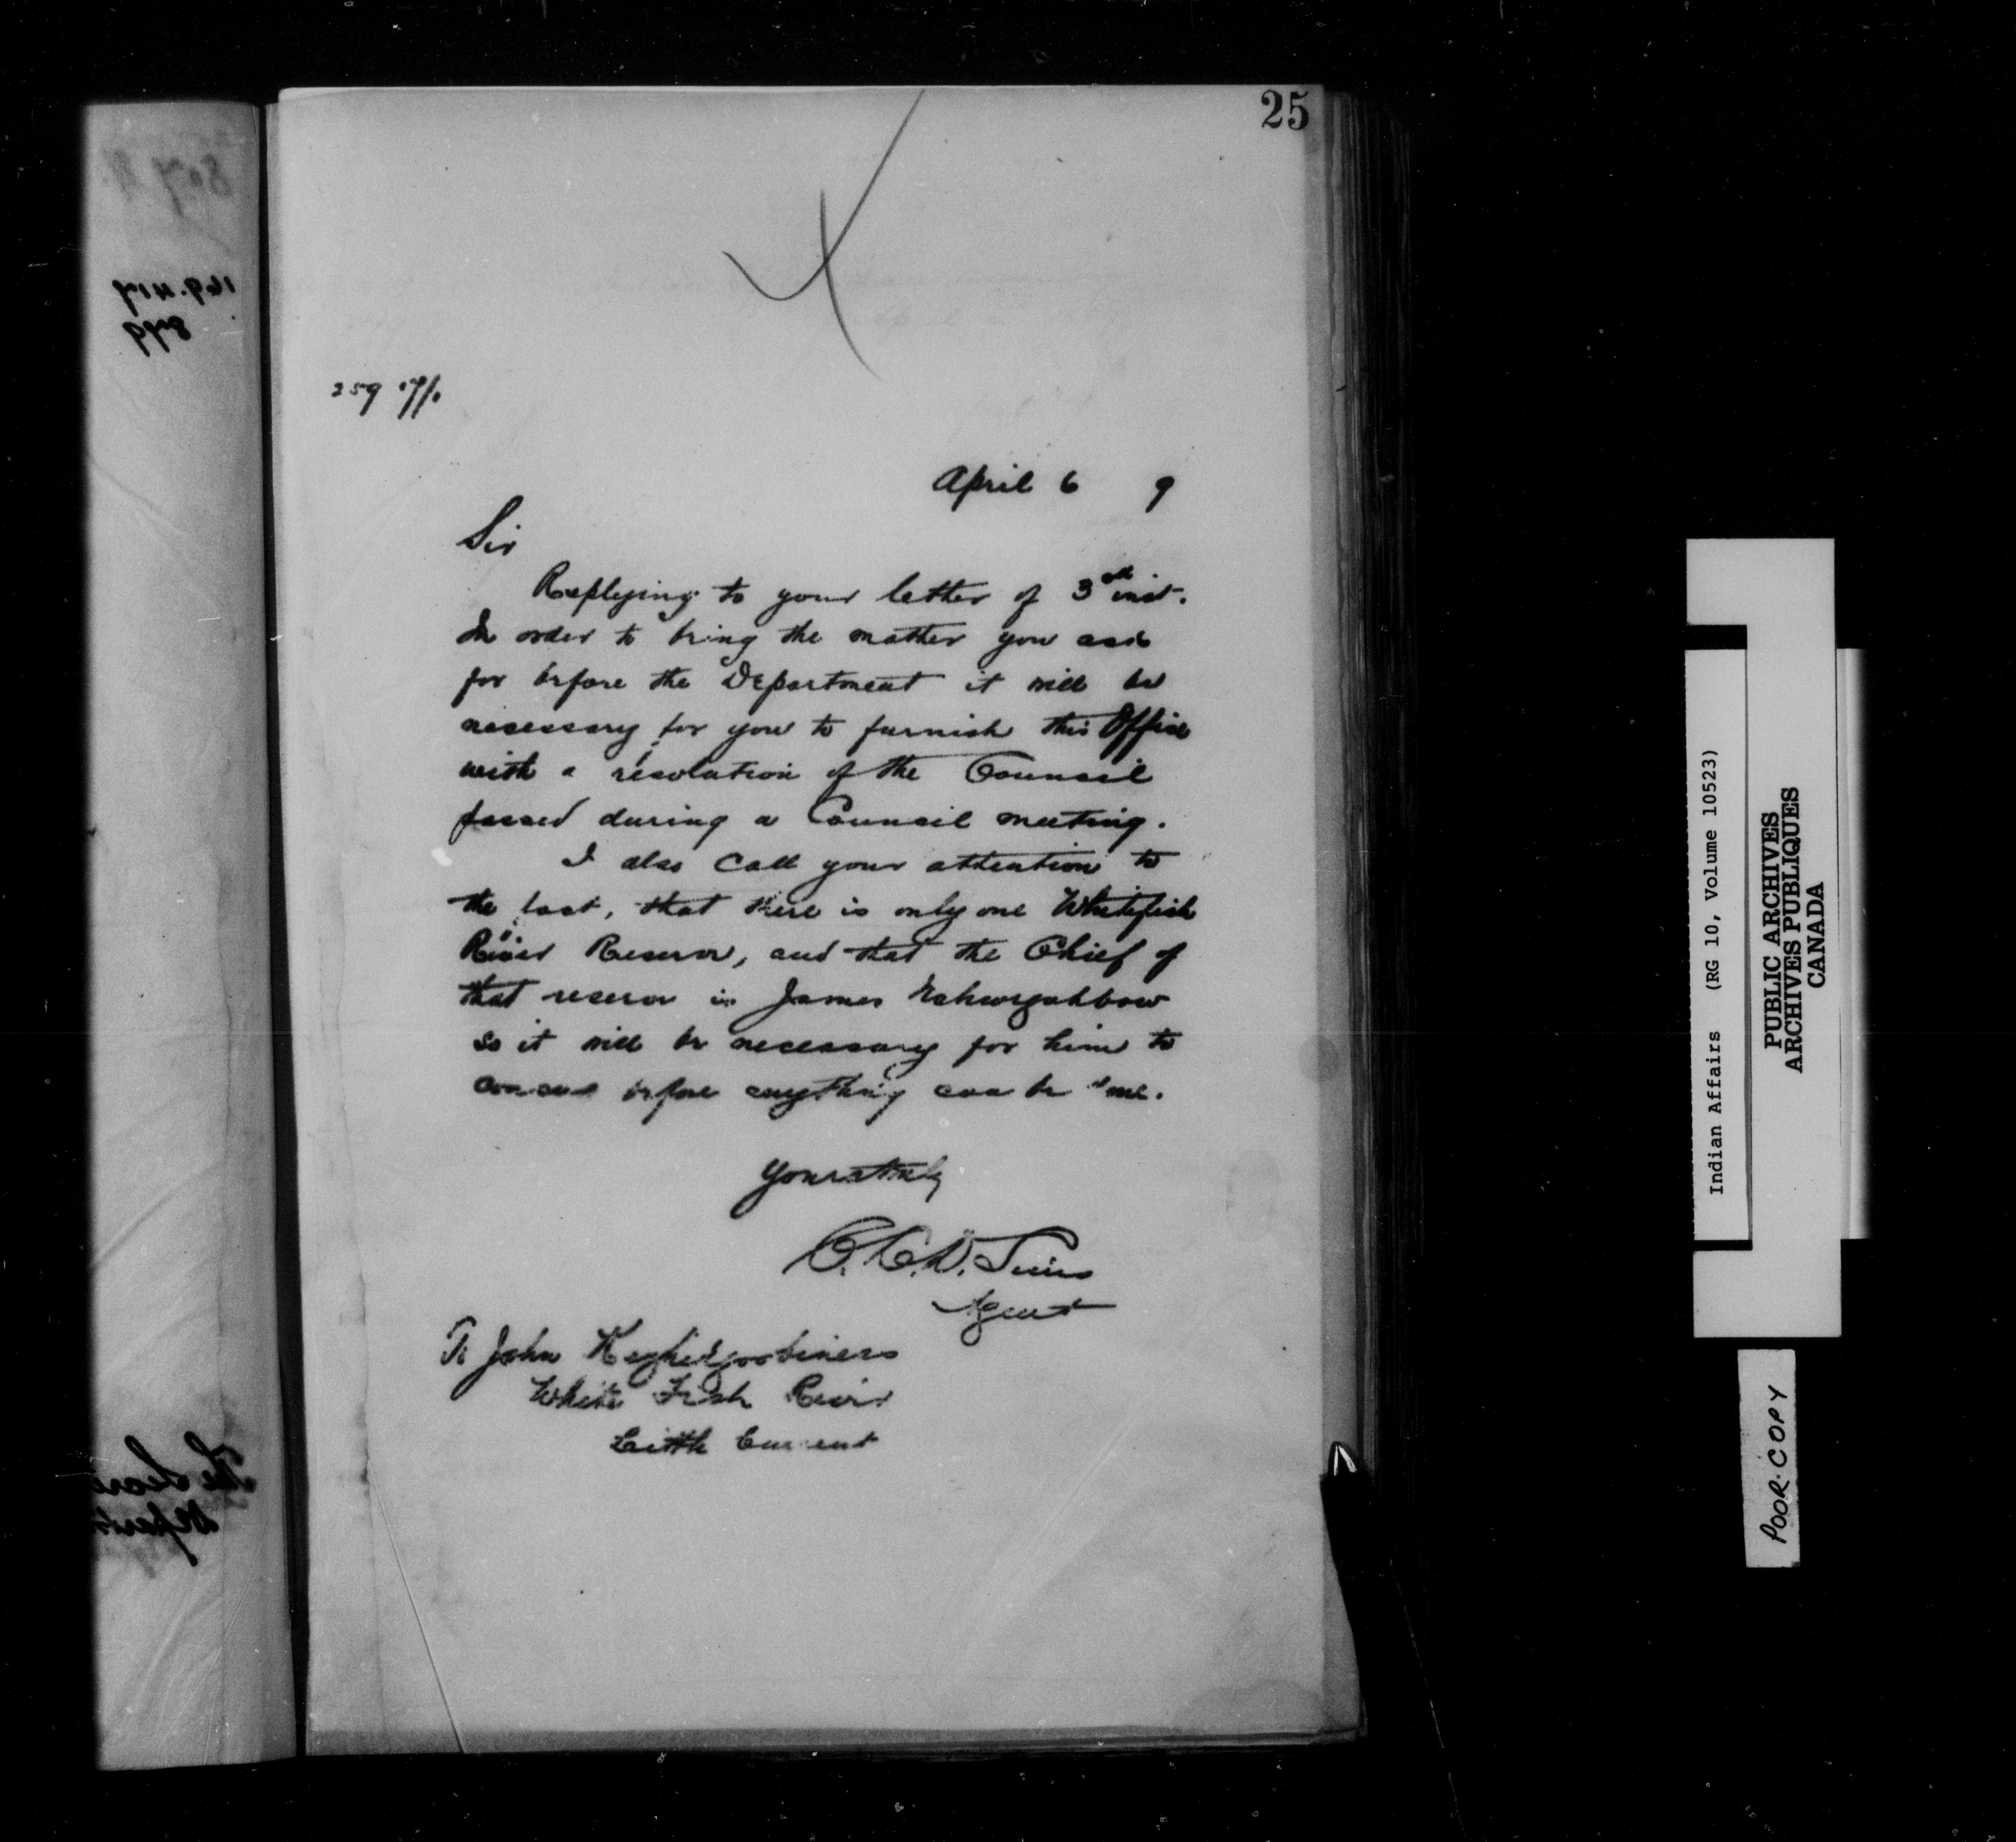 25
259
April 6 9
Sir
Replying to your letter of 3rd inst.
In order to bring the matter you ask
for before the Department it will be
necessary for you to furnish this Office
with a resolution of the Council
passed during a Council meeting.
I also call your attention to
the fact, that there is only one Whitefish
River Reserve, and that the Chief of
that reserve is James
so it will be necessary for him to
concur before anything can be done.
Yours truly
C.C.D. Sims
Agent
To John
White Fish River
Little Current
Indian Affairs (RG 10, Volume 10523)
PUBLIC ARCHIVES
ARCHIVES PUBLIQUES
CANADA
POOR COPY